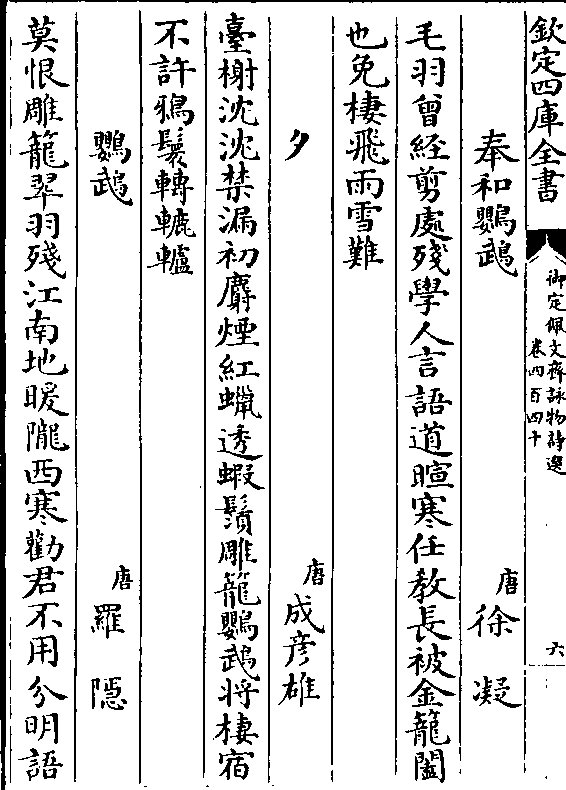 欽定四庫全書
御定佩文齊詠物詩選
卷四百四十
六
奉和鸚鵡 唐 徐凝
毛羽曾經剪處殘學人言語道暄寒任教長被金籠闔
也免棲飛雨雪難
夕 唐 成彦雄
臺榭沈沈禁漏初麝煙紅蠟透蝦鬚雕籠鸚鵡將棲宿
不許鴉鬟轉轆轤
鸚鵡 唐 羅隱
莫恨雕籠翠羽殘江南地暖隴西寒勸君不用分明語